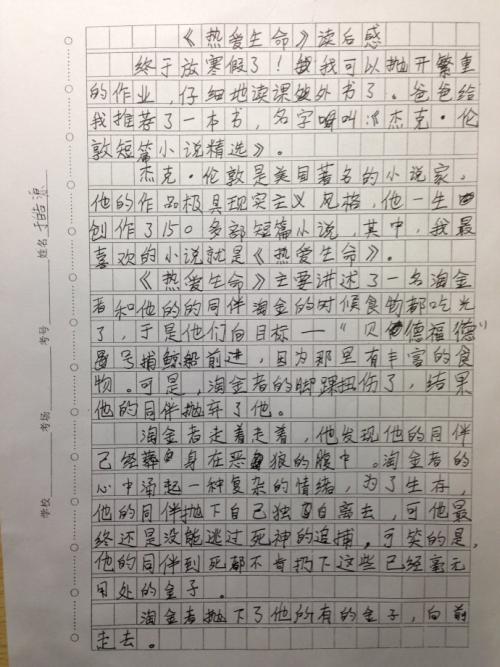 《热爱生命》读后感
终于放寒假了！我可以抛开繁重
的作业，仔细地读课外书了。爸爸给
我推荐了一本书，名字叫：《杰克·伦
敦短篇小说精选》。
杰克·伦敦是美国著名的小说家。
他的作品极具现实主义风格，他一生
创作了150多部短篇小说，其中，我最
喜欢的小说就是《热爱生命》。
《热爱生命》主要讲述了一名淘金
者和他的的同伴淘金的时候食物都吃光
了，于是他们向目标—“贝德福德”
号捕鲸船前进，因为那里有丰富的食
物。可是，淘金者的脚踝扭伤了，结果
他的同伴抛弃了他。
淘金者走着走着，他发现他的同伴
已经葬身在恶狼的腹中。淘金者的
心中涌起一种复杂的情绪，为了生存，
他的同伴抛下自己独自离去，可他最
终还是没能逃过死神的追捕。可笑的是，
他的同伴到死都不肯扔下这些已经毫无
用处的金子。
淘金者抛下了他所有的金子，向前
走去。
学校 考场 考号 姓名